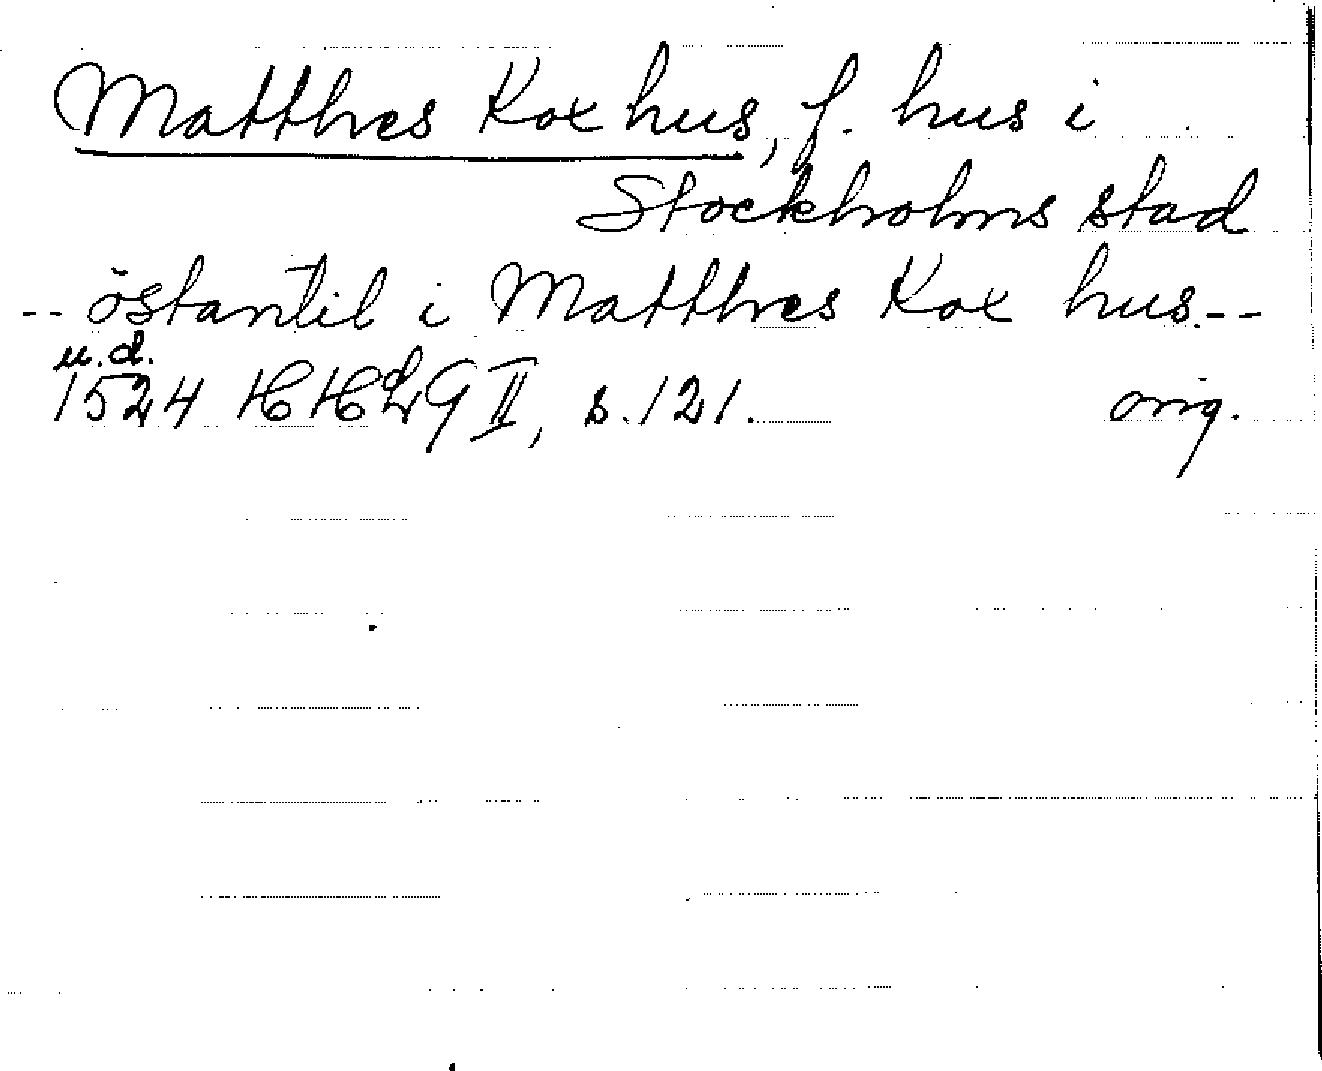 Matthes Kox hus, f. hus i
Stockholms stad
-- östantil i Matthes Kox hus.--
u.d.
1524 HHLG II, s. 121. orig.